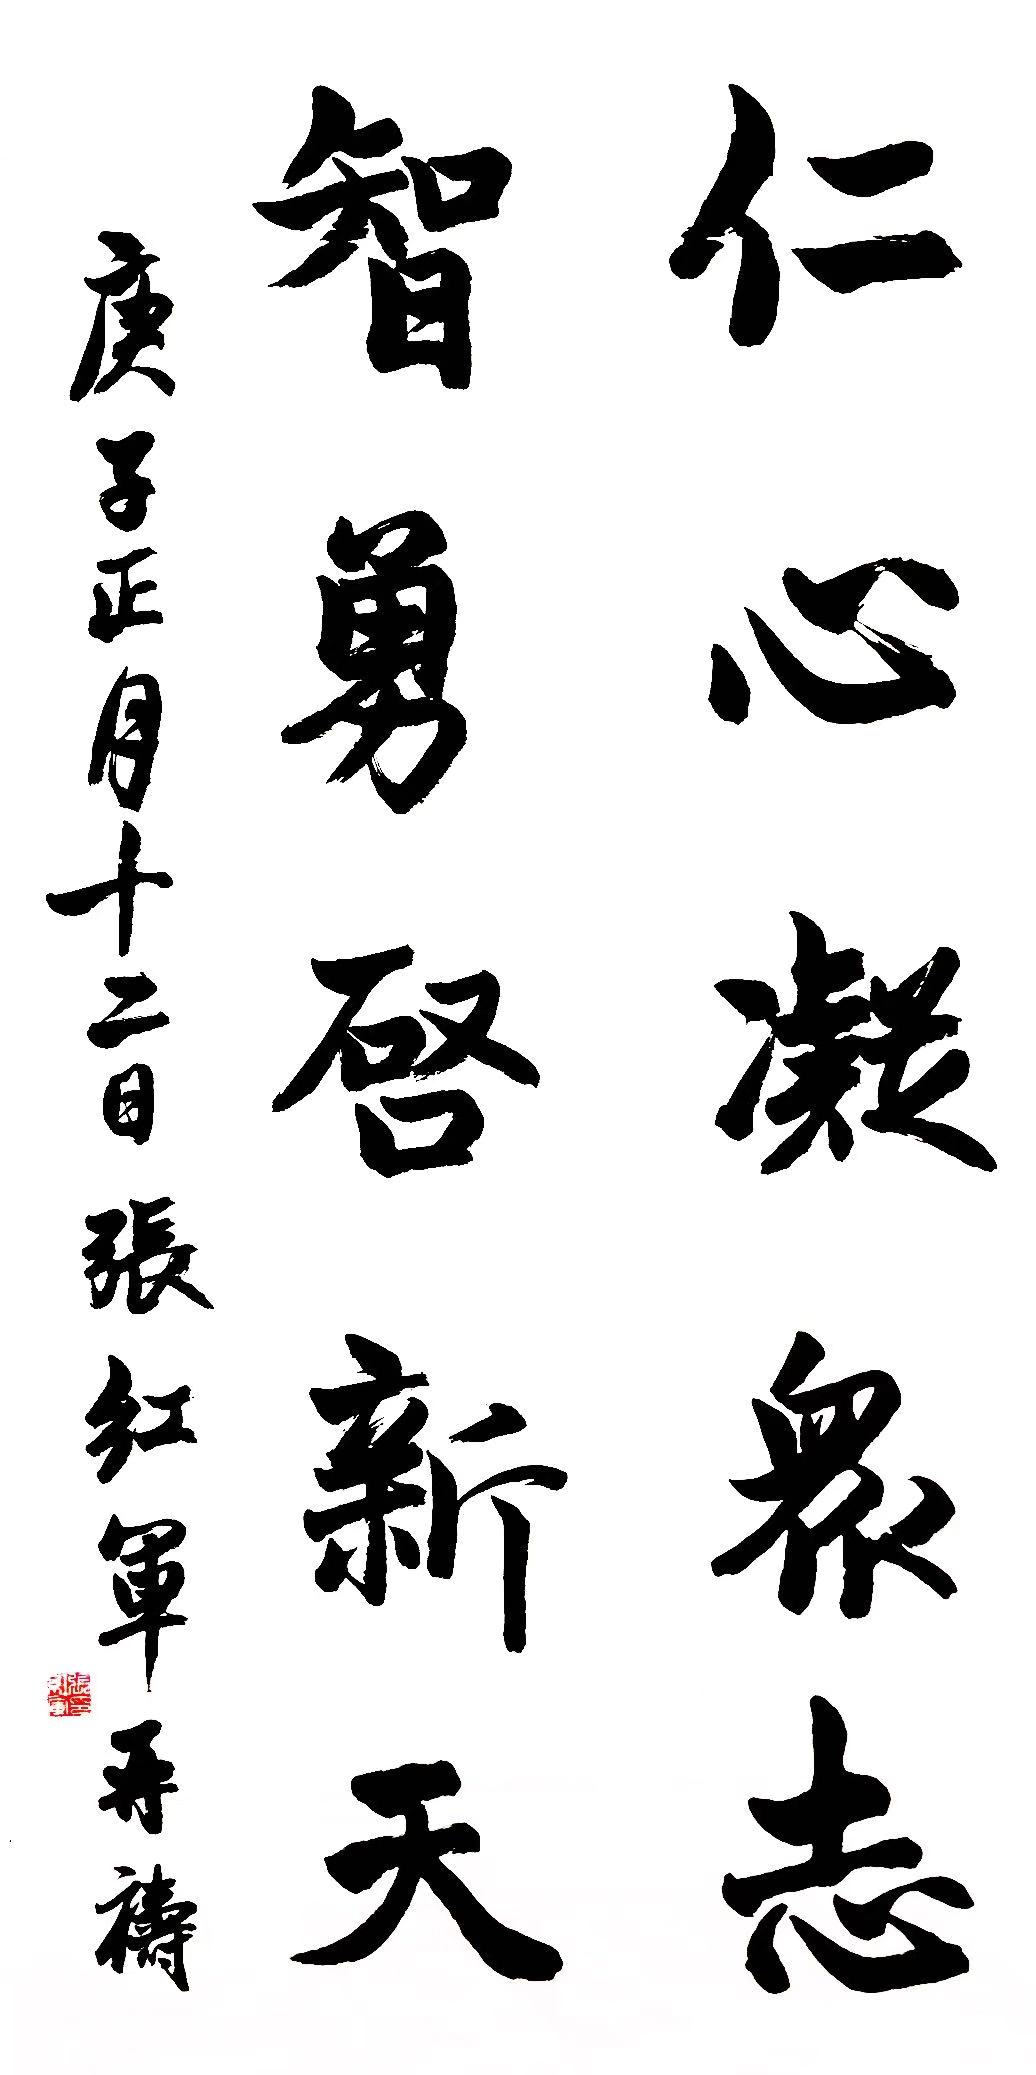 仁心凝眾志
智勇啓新天
庚子正月十二日張紅軍再禱